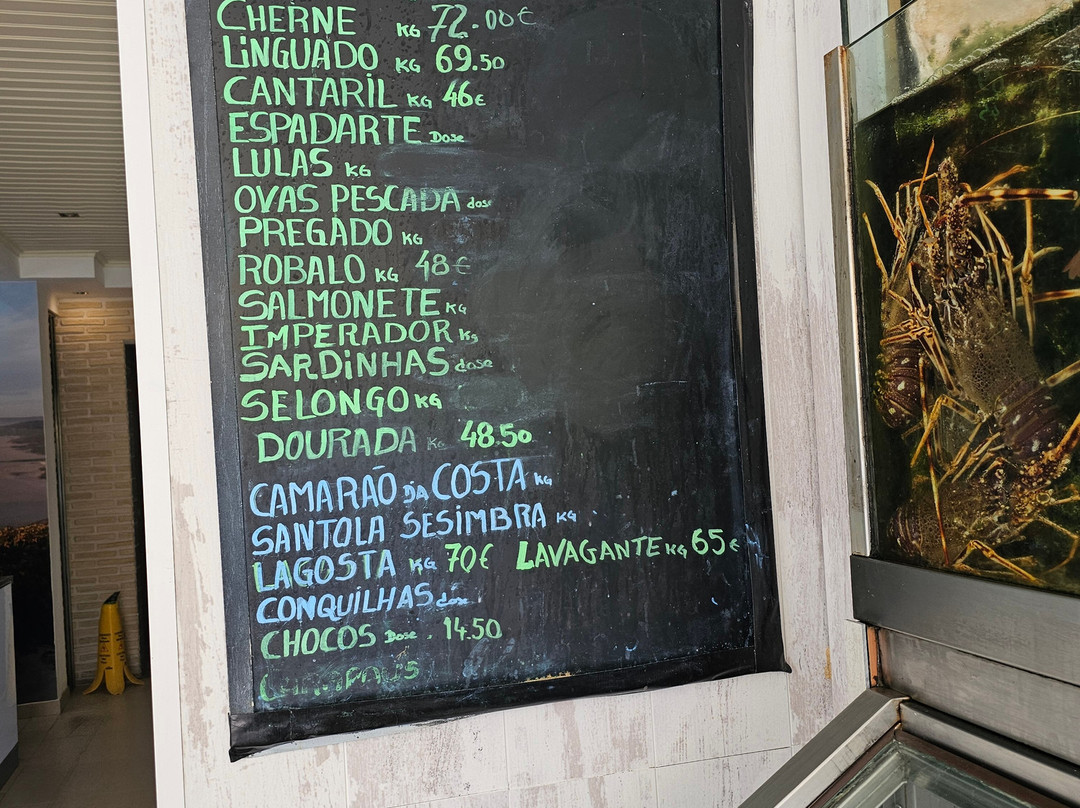 CHERNE KG 72.00€
LINGUADO KG 69.50
CANTARIL KG 46€
ESPADARTE Dose
LULAS KG
OVAS PESCADA dose
PREGADO KG
ROBALO KG 48€
SALMONETE KG
IMPERADOR KG
SARDINHAS dose
SELONGO KG
DOURADA KG 48.50
CAMARÃO DA COSTA KG
SANTOLA SESIMBRA KG
LAGOSTA KG 70€ LAVAGANTE KG 65€
CONQUILHAS dose
CHOCOS Dose . 14.50